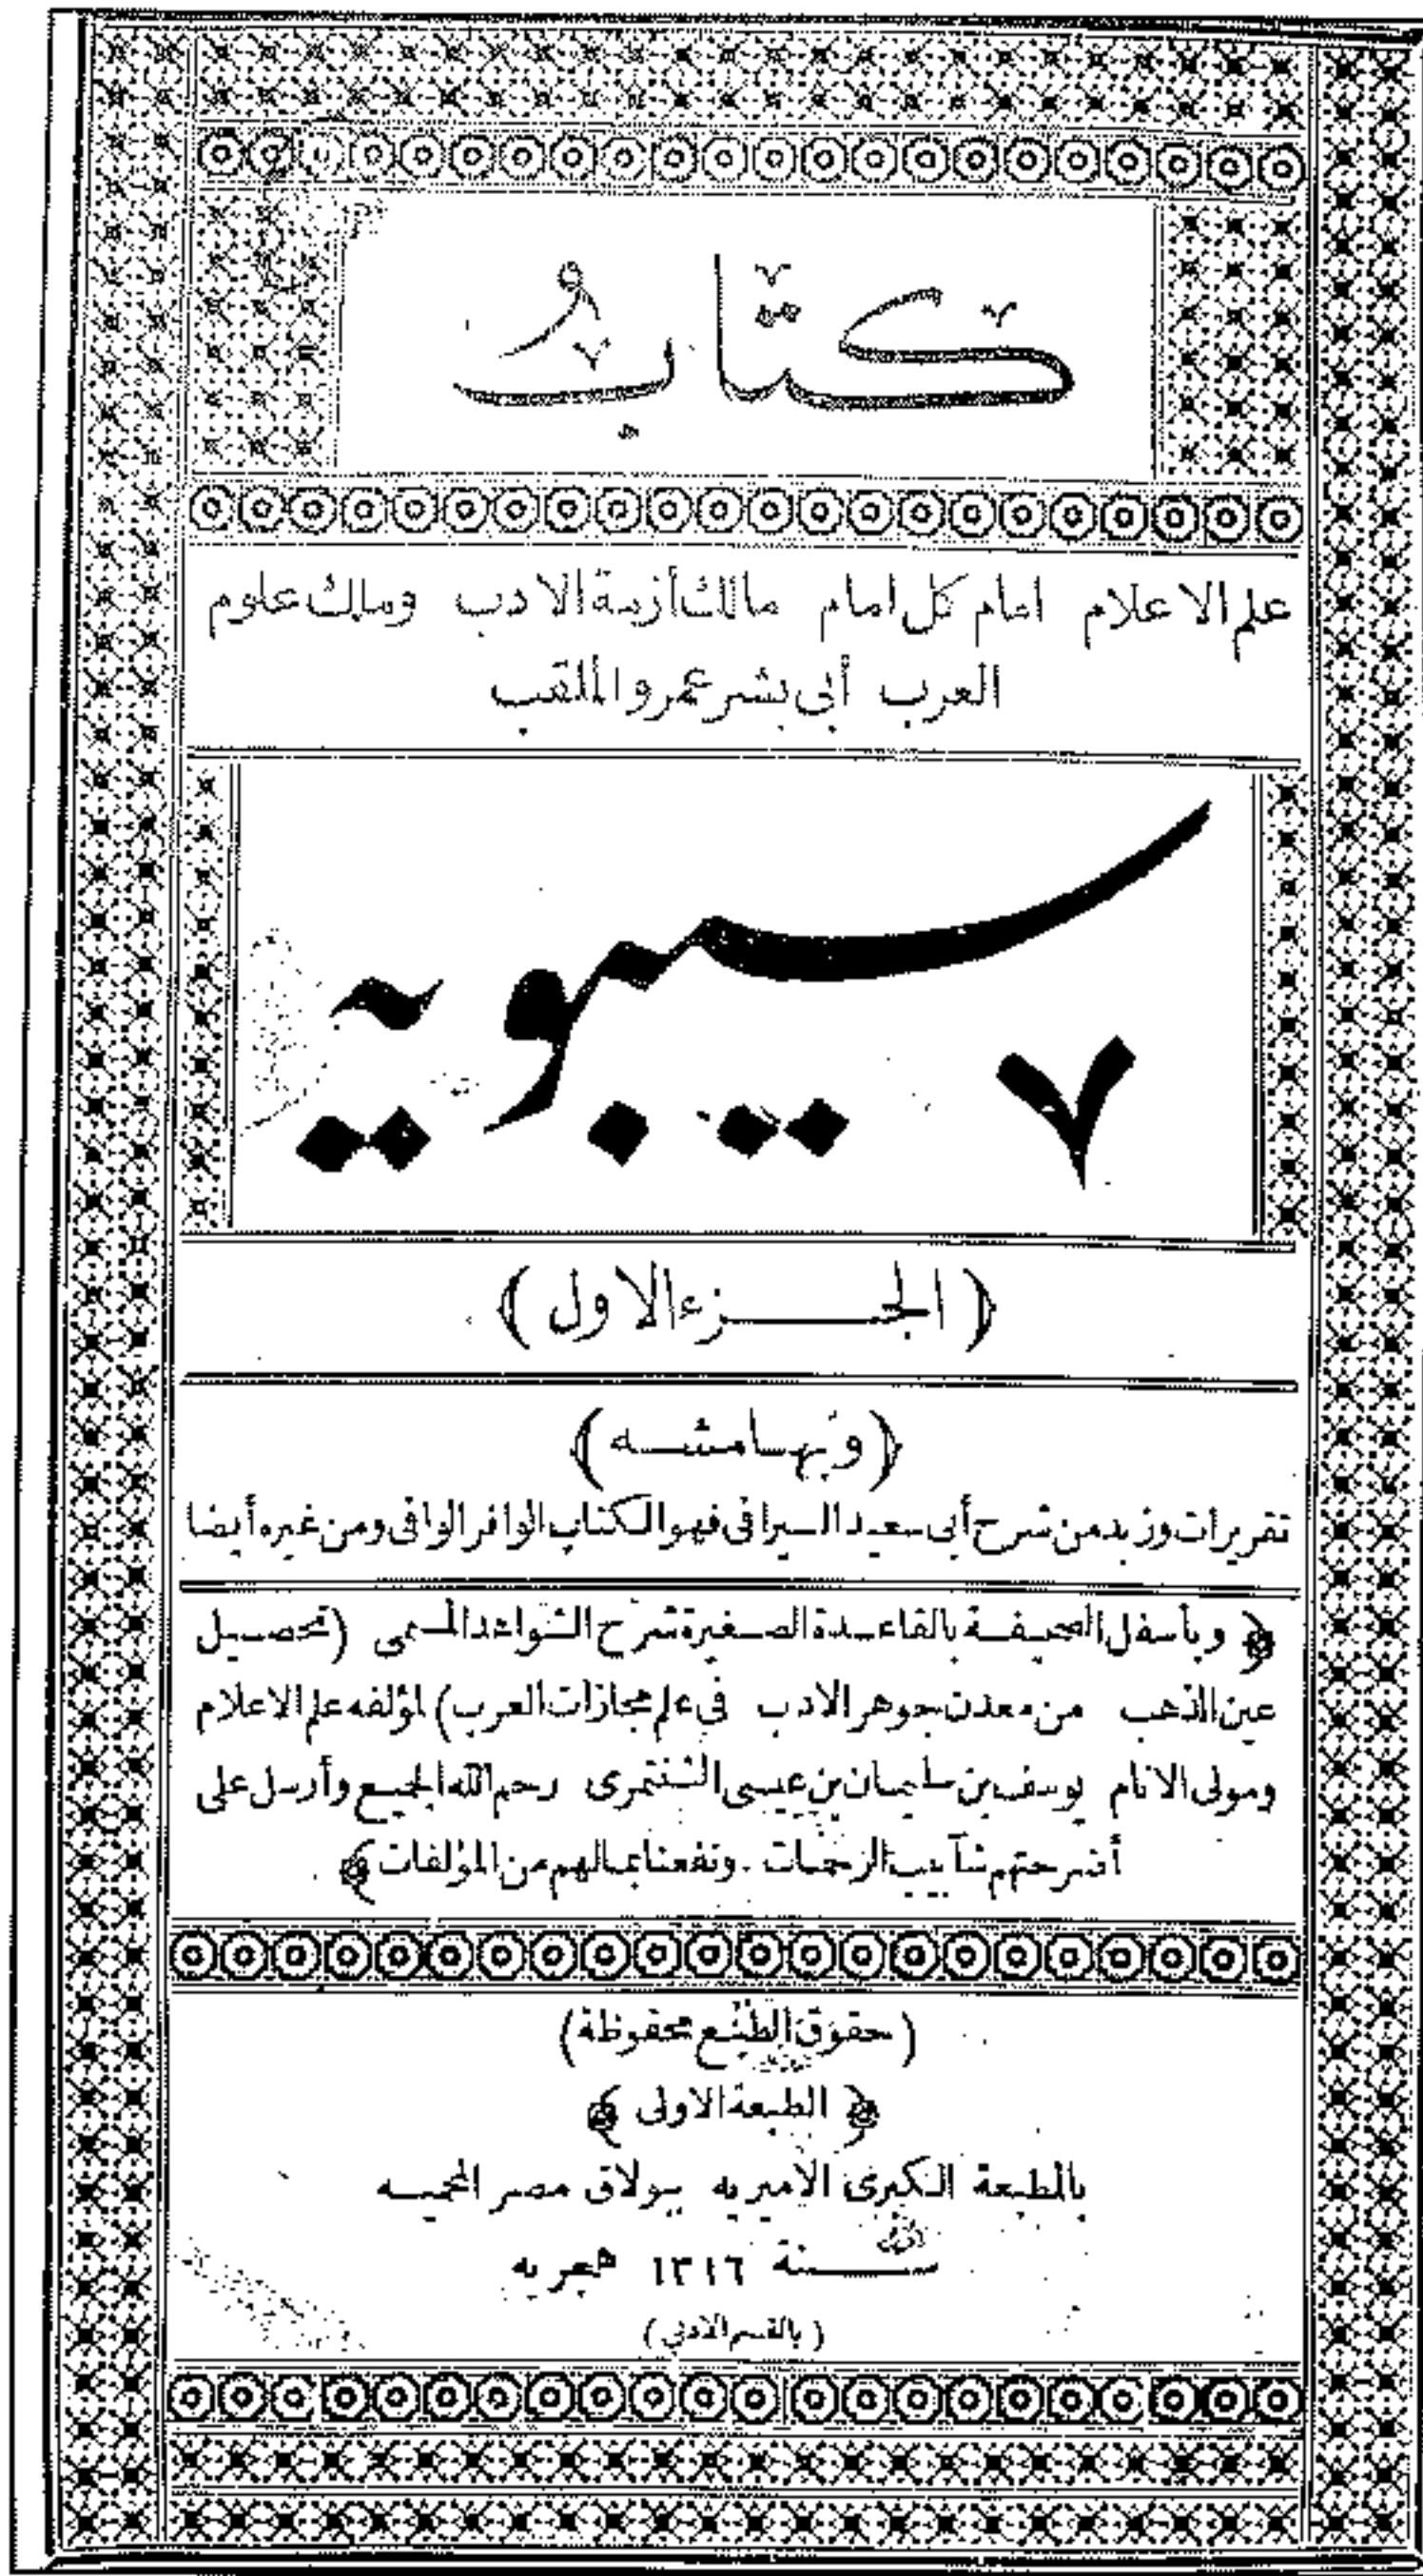 كتاب
علم الاعلام امام كل امام مالك أزمة الادب ومالك علوم
العرب أبى بشر عمرو الملقب
سيبويه
(الجزء الاول)
(وبهامشه)
تقريرات وزبد من شرح أبى سعيد السيرافى فهو الكتاب الوافر الوافى ومن غيره أيضا
﴿ وبأسفل الصحيفة بالقاعدة الصغيرة شرح الشواهد المسمى (تحصيل
عين الذهب من معدن جوهر الادب فى علم مجازات العرب) لمؤلفه علم الاعلام
ومولى الانام يوسف بن سليمان بن عيسى الشنتمرى رحم الله الجميع وأرسل على
أضرحتهم شآبيب الرحمات ونفعنا بمالهم من المؤلفات ﴾
(حقوق الطبع محفوظة)
﴿ الطبعة الاولى ﴾
بالمطبعة الكبرى الاميريه ببولاق مصر المحميه
سنة ١٣١٦ هجريه
(بالقسم الادبى)